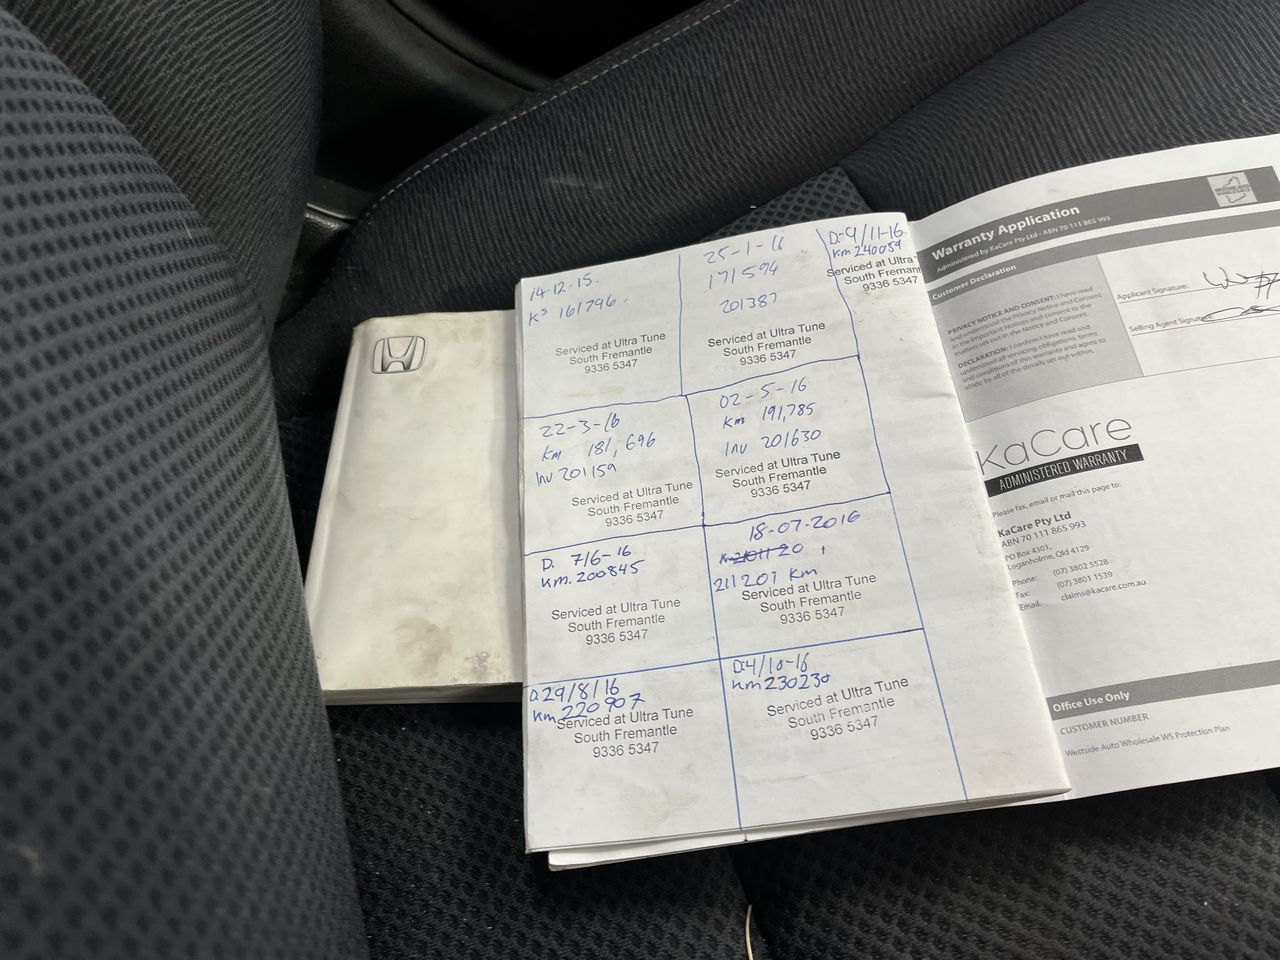 14-12-15.
Ks 161796.
Serviced at Ultra Tune
South Fremantle
9336 5347
25-1-16
171594
201387
Serviced at Ultra Tune
South Fremantle
9336 5347
D-9/11-16
km 240059
Serviced at Ultra
South Fremant
9336 5347
22-3-16
Km 181,696
Inv 201159
Serviced at Ultra Tune
South Fremantle
9336 5347
02-5-16
Km 191,785
Inv 201630
Serviced at Ultra Tune
South Fremantle
9336 5347
D. 7/6-16
km. 200845
Serviced at Ultra Tune
South Fremantle
9336 5347
18-07-2016
211207 Km
Serviced at Ultra Tune
South Fremantle
9336 5347
D.29/8/16
Km 220907
Serviced at Ultra Tune
South Fremantle
9336 5347
D:4/10-16
km 230230
Serviced at Ultra Tune
South Fremantle
9336 5347
Warranty Application
Administered by KaCare Pty Ltd - ABN 70 111 865 993
WESTSIDE AUTO
WHOLESALE
Customer Declaration
PRIVACY NOTICE AND CONSENT: I have read
and understood the Privacy Notice and Consent
in the Important Notices and consent to the
matters set out in the Notice and Consent.
DECLARATION: I confirm I have read and
understood all servicing obligations, terms
and conditions of this warranty and agree to
abide by all of the details set out within.
Applicant Signature:
Selling Agent Signature:
KaCare
ADMINISTERED WARRANTY
Please fax, email or mail this page to:
KaCare Pty Ltd
ABN 70 111 865 993
PO Box 4301,
Loganholme, Qld 4129
Phone: (07) 3802 5528
Fax: (07) 3801 1539
Email: claims@kacare.com.au
Office Use Only
CUSTOMER NUMBER
Westside Auto Wholesale WS Protection Plan